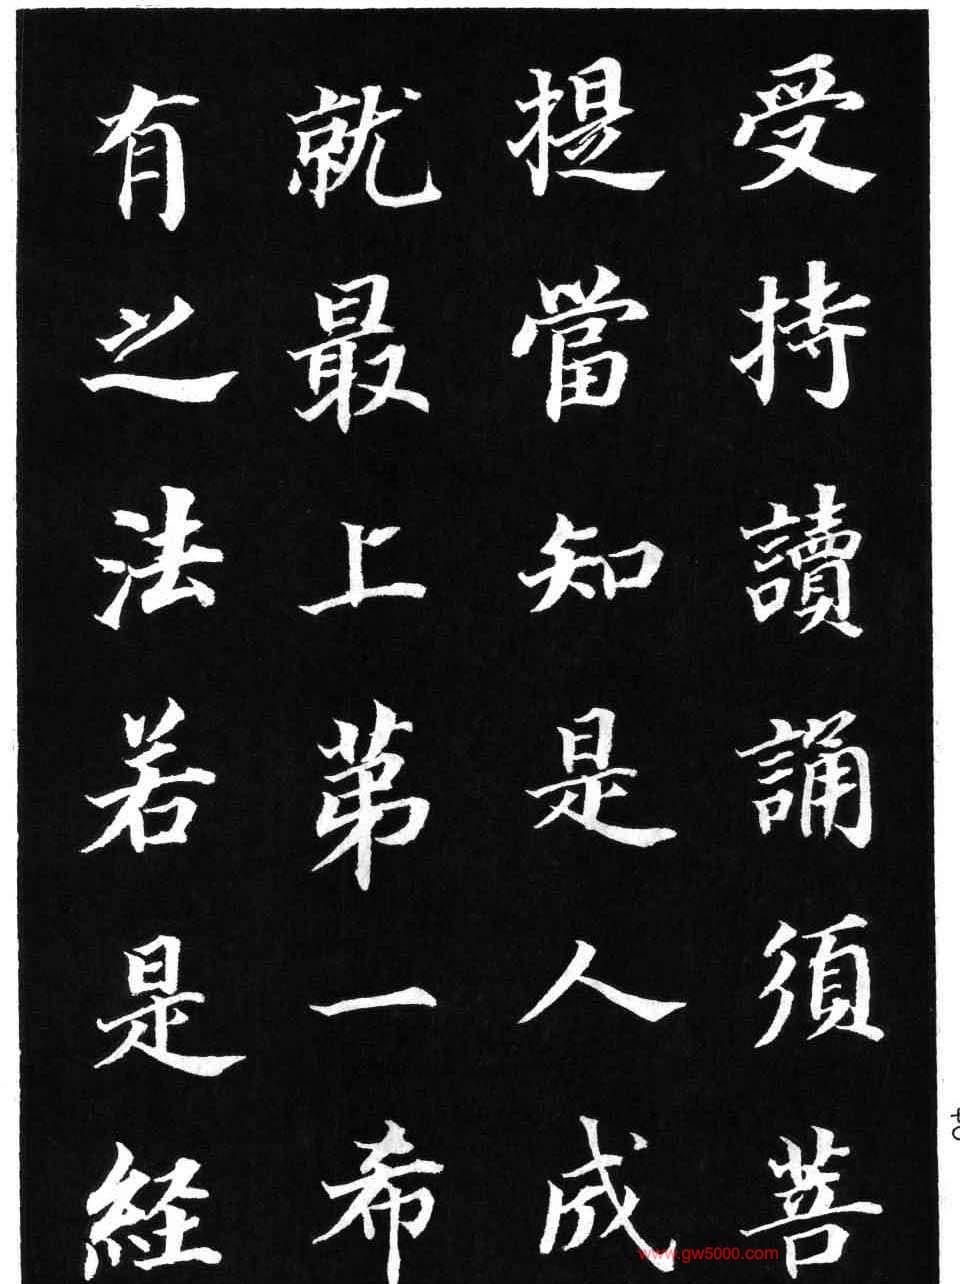 受持讀誦須菩
提當知是人成
就最上苐一希
有之法若是経
www.gw5000.com
40